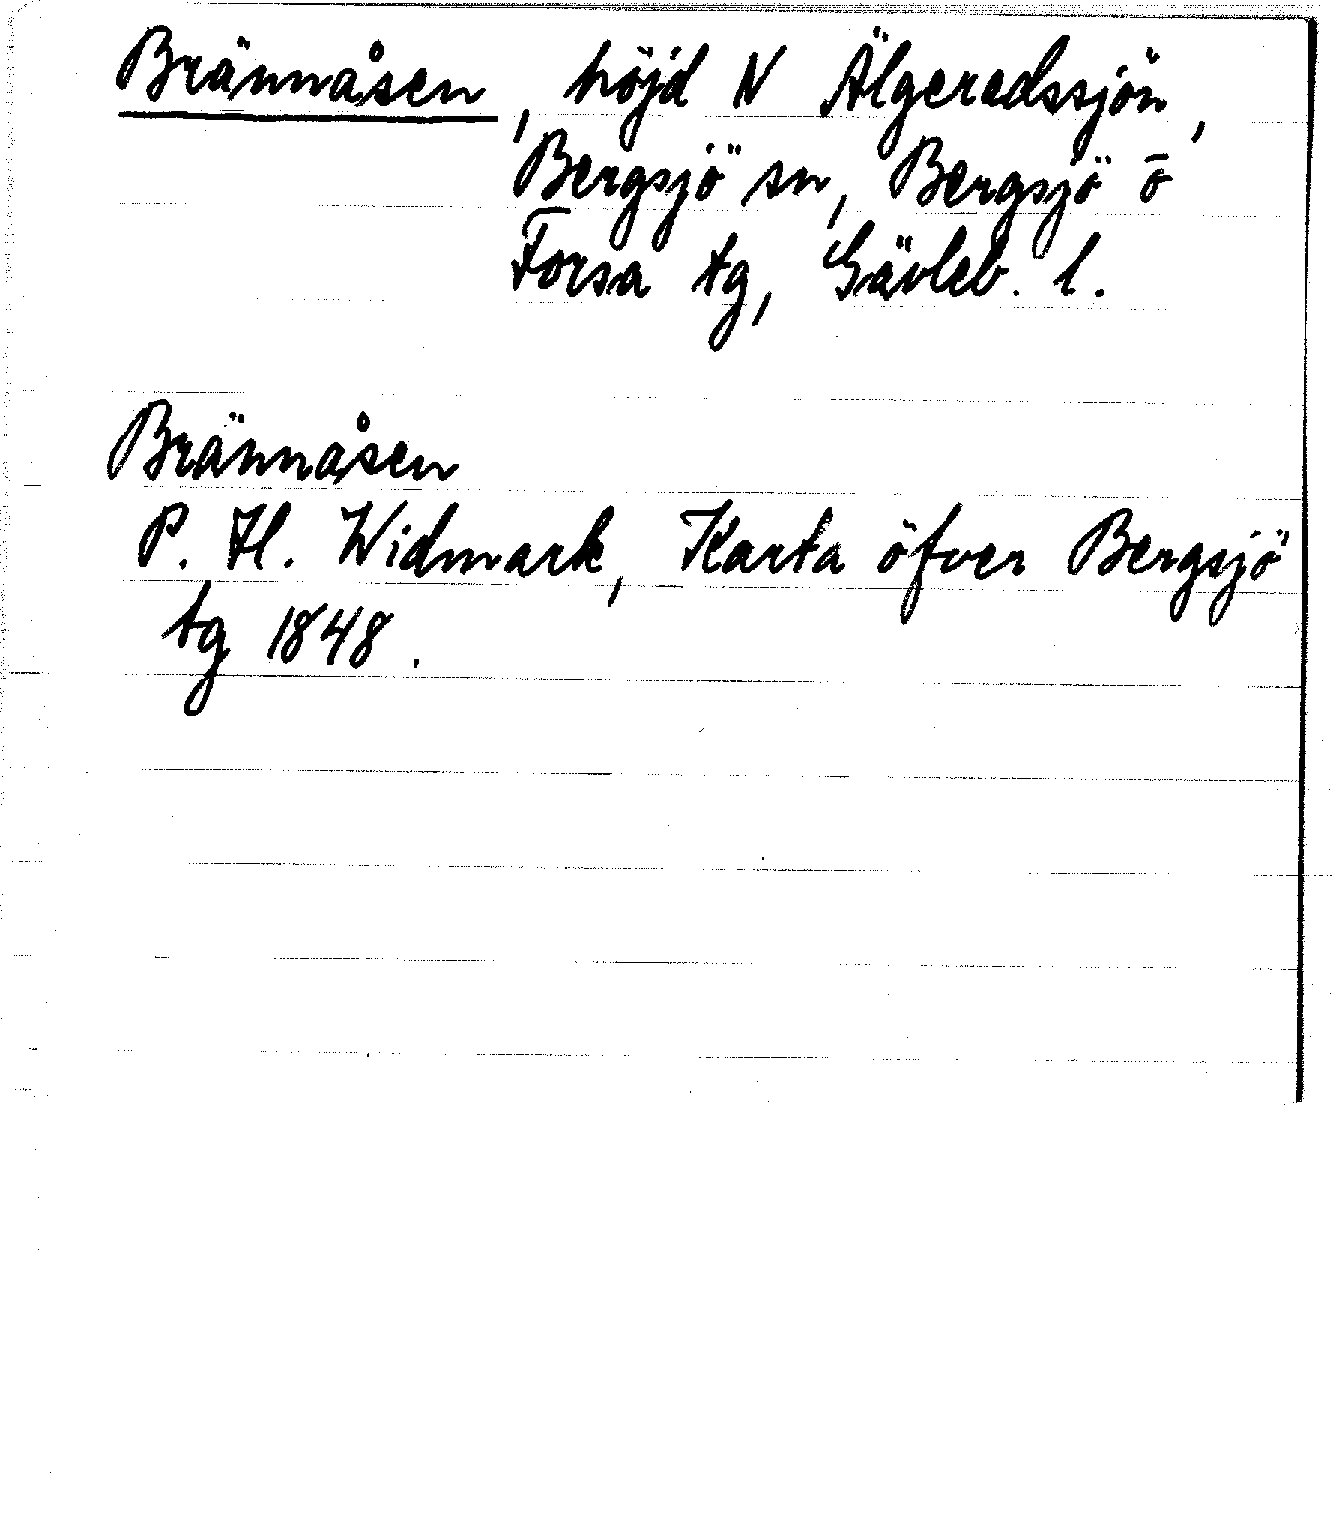 Brännåsen, höjd N Älgeredssjön,
Bergsjö sn, Bergsjö o
Forsa tg, Gävleb. l.
Brännåsen
P. H. Widmark, Karta öfver Bergsjö
tg 1848.